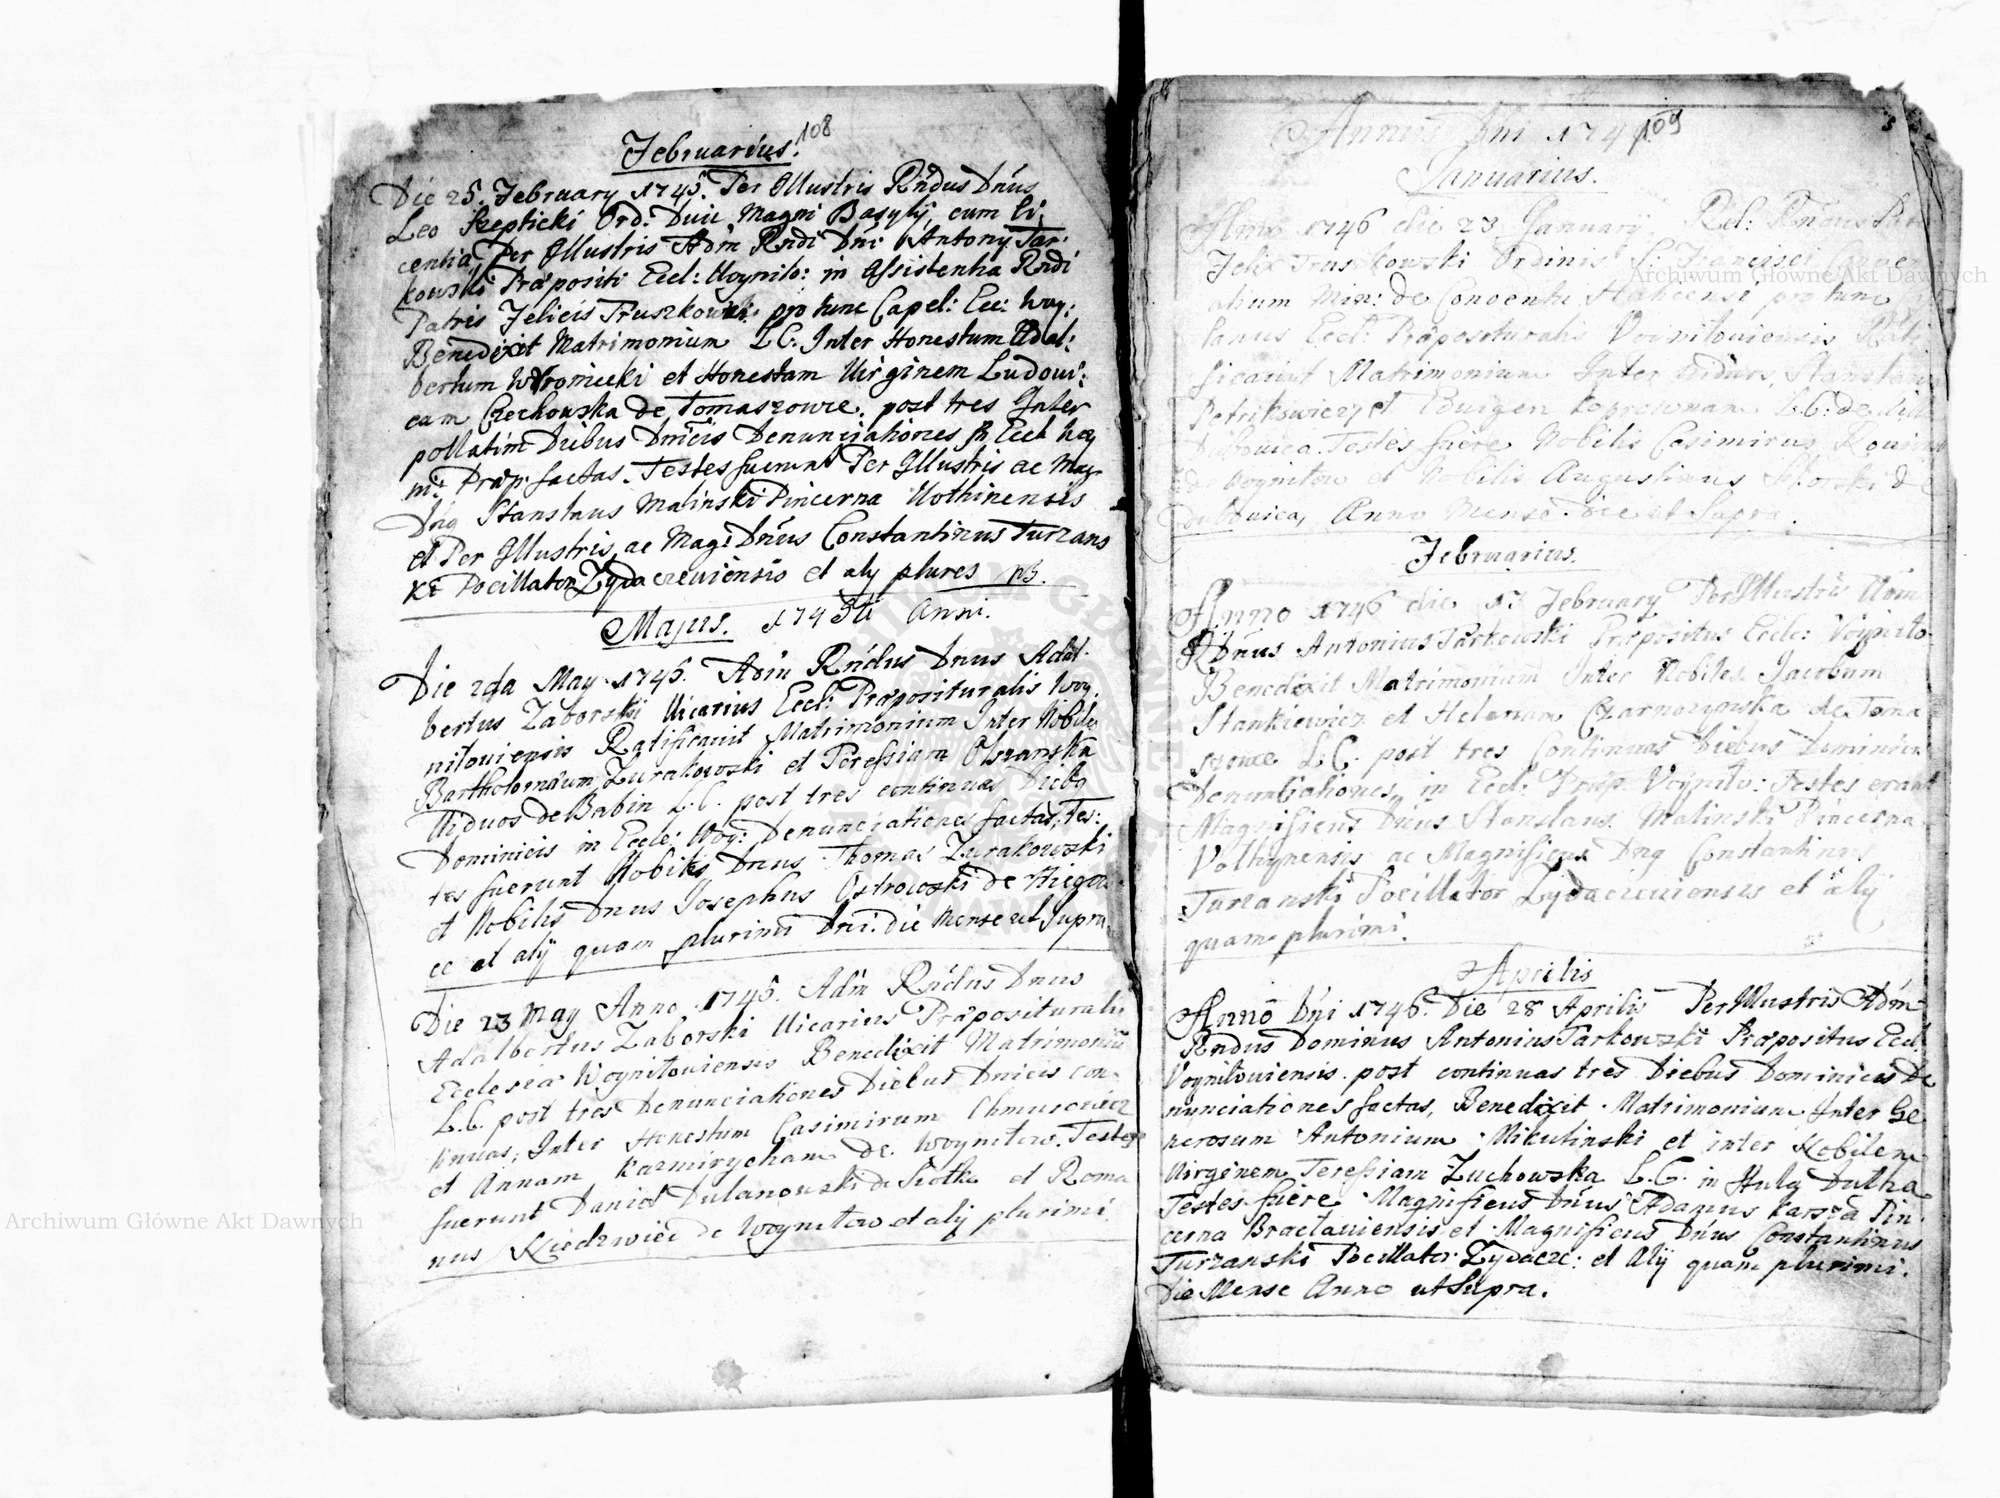 108
Februarius.
Die 25. February 1745. Per Illustris Rndus Dnus
Leo Szepticki Ord: Divi Magni Basylij, cum li:
centia Per Illustris Adm Rndi Dni Antony Tar:
kowski Præpositi Eccl: Woynilo: in Assistentia Rndi
Patris Felicis Truszkowski pro tunc Capel: Ecc: Woy:
Benedixit Matrimonium L.C. Inter Honestum Adal:
bertum Wroniecki et Honestam Virginem Ludovi:
cam Czechowska de Tomaszowce. post tres Inter
pollatim Diebus Dnicis Denunciationes in Eccl: Woy
ni: Præp: factas. Testes fuerunt Per Illustris ac Mag
Dnq Stanslaus Malinski Pincerna Wolhinensis
et Per Illustris ac Mag: Dnus Constantinus Turzans
ki Pocillator Zydaczeviensis et alij plures
Majus. 1745ti Anni.
Die 2da May 1745. Adm Rndus Dnus Adal:
bertus Zaborski Vicarius Eccl: Præposituralis Woy:
niloviensis Ratificavit Matrimonium Inter Nobile
Bartholomæum Zurakowski et Teressiam Olszanska
Viduos de Babin L.C. post tres continuas Diebq
Dominicis in Eccle: Woy: Denunciationes factas, Tes:
tes fuerunt Nobiles Dnus Thomas Zurakowski
et Nobilis Dnus Josephus Ostrowski de
ec et alij quam plurimi Dni. die Mense ut Supra
Die 23 May Anno 1745. Adm Rndus Dnus
Adalbertus Zaborski Vicarius Præposituralis
Ecclesiæ Woyniloviensis Benedixit Matrimoniu
L.C. post tres Denunciationes Diebus Dnicis con:
tinuas, Inter Honestum Casimirum Chmurowicz
et Annam Kazmirycham de Woynitow. Testes
fuerunt Daniel Dulanowski de Siotka et Roma
nus Niedzwiec de Woynitow et alij plurimi
109
Annus Dni 174
Januarius.
Anno 1746 die 23 January. Rel: Rndus Pat
Felix Truszkowski Ordinis S: Francisci Conven
alium Min: de Conventu Haliciensi pro tunc
lanus Eccl: Præposituralis Voiniloviensis Rati
ficavit Matrimonium Inter Stanslaum
Petrikiewicz et Eduigen L.C. de
Testes fuére Nobilis Casimirus
de Woynitow et Nobilis Augustinus de
Anno Mense Die ut Supra.
Februarius.
Anno 1746 die 13 February Per Illustris Adm
Rdnus Antonius Tarkowski Præpositus Eccle: Voynilo
Benedixit Matrimonium Inter Nobiles Jacobum
Stankiewicz et Helenam Czarnozynska de Toma
szowce L.C. post tres Continuas Diebus Dominicis
Denunciationes in Eccl: Præp: Voynilo: Testes erant
Magnificus Dnus Stanslaus Malinski Pincerna
Volhynensis ac Magnificus Dnq Constantinus
Turzanski Pocillator Zydaczeviensis et alij
quam plurimi.
Aprilis
Anno Dni 1746. Die 28 Aprilis Per Illustris Adm
Rndus Dominus Antonius Tarkowski Præpositus Eccl:
Voyniloviensis post continuas tres Diebus Dominicis De
nunciationes factas, Benedixit Matrimonium Inter Ge
nerosum Antonium Mikulinski et inter Nobilem
Virginem Teressiam Zuchowska L.C. in Huly Dulha
Testes fuére Magnificus Dnus Adamus Karsza Pin:
cerna Braclaviensis et Magnificus Dnus Constantinus
Turzanski Pocillator Zydacze: et Alij quam plurimi.
Die Mense Anno ut Supra.
Archiwum Główne Akt Dawnych
Archiwum Główne Akt Dawnych